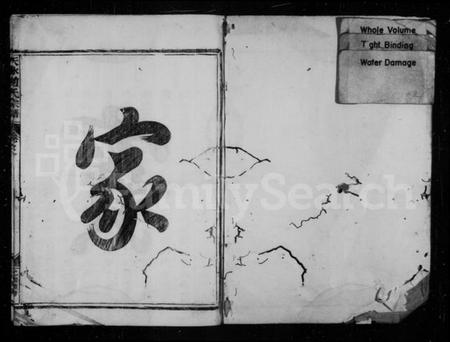 家
Whole Volume
Tight Binding
Water Damage
FamilySearch